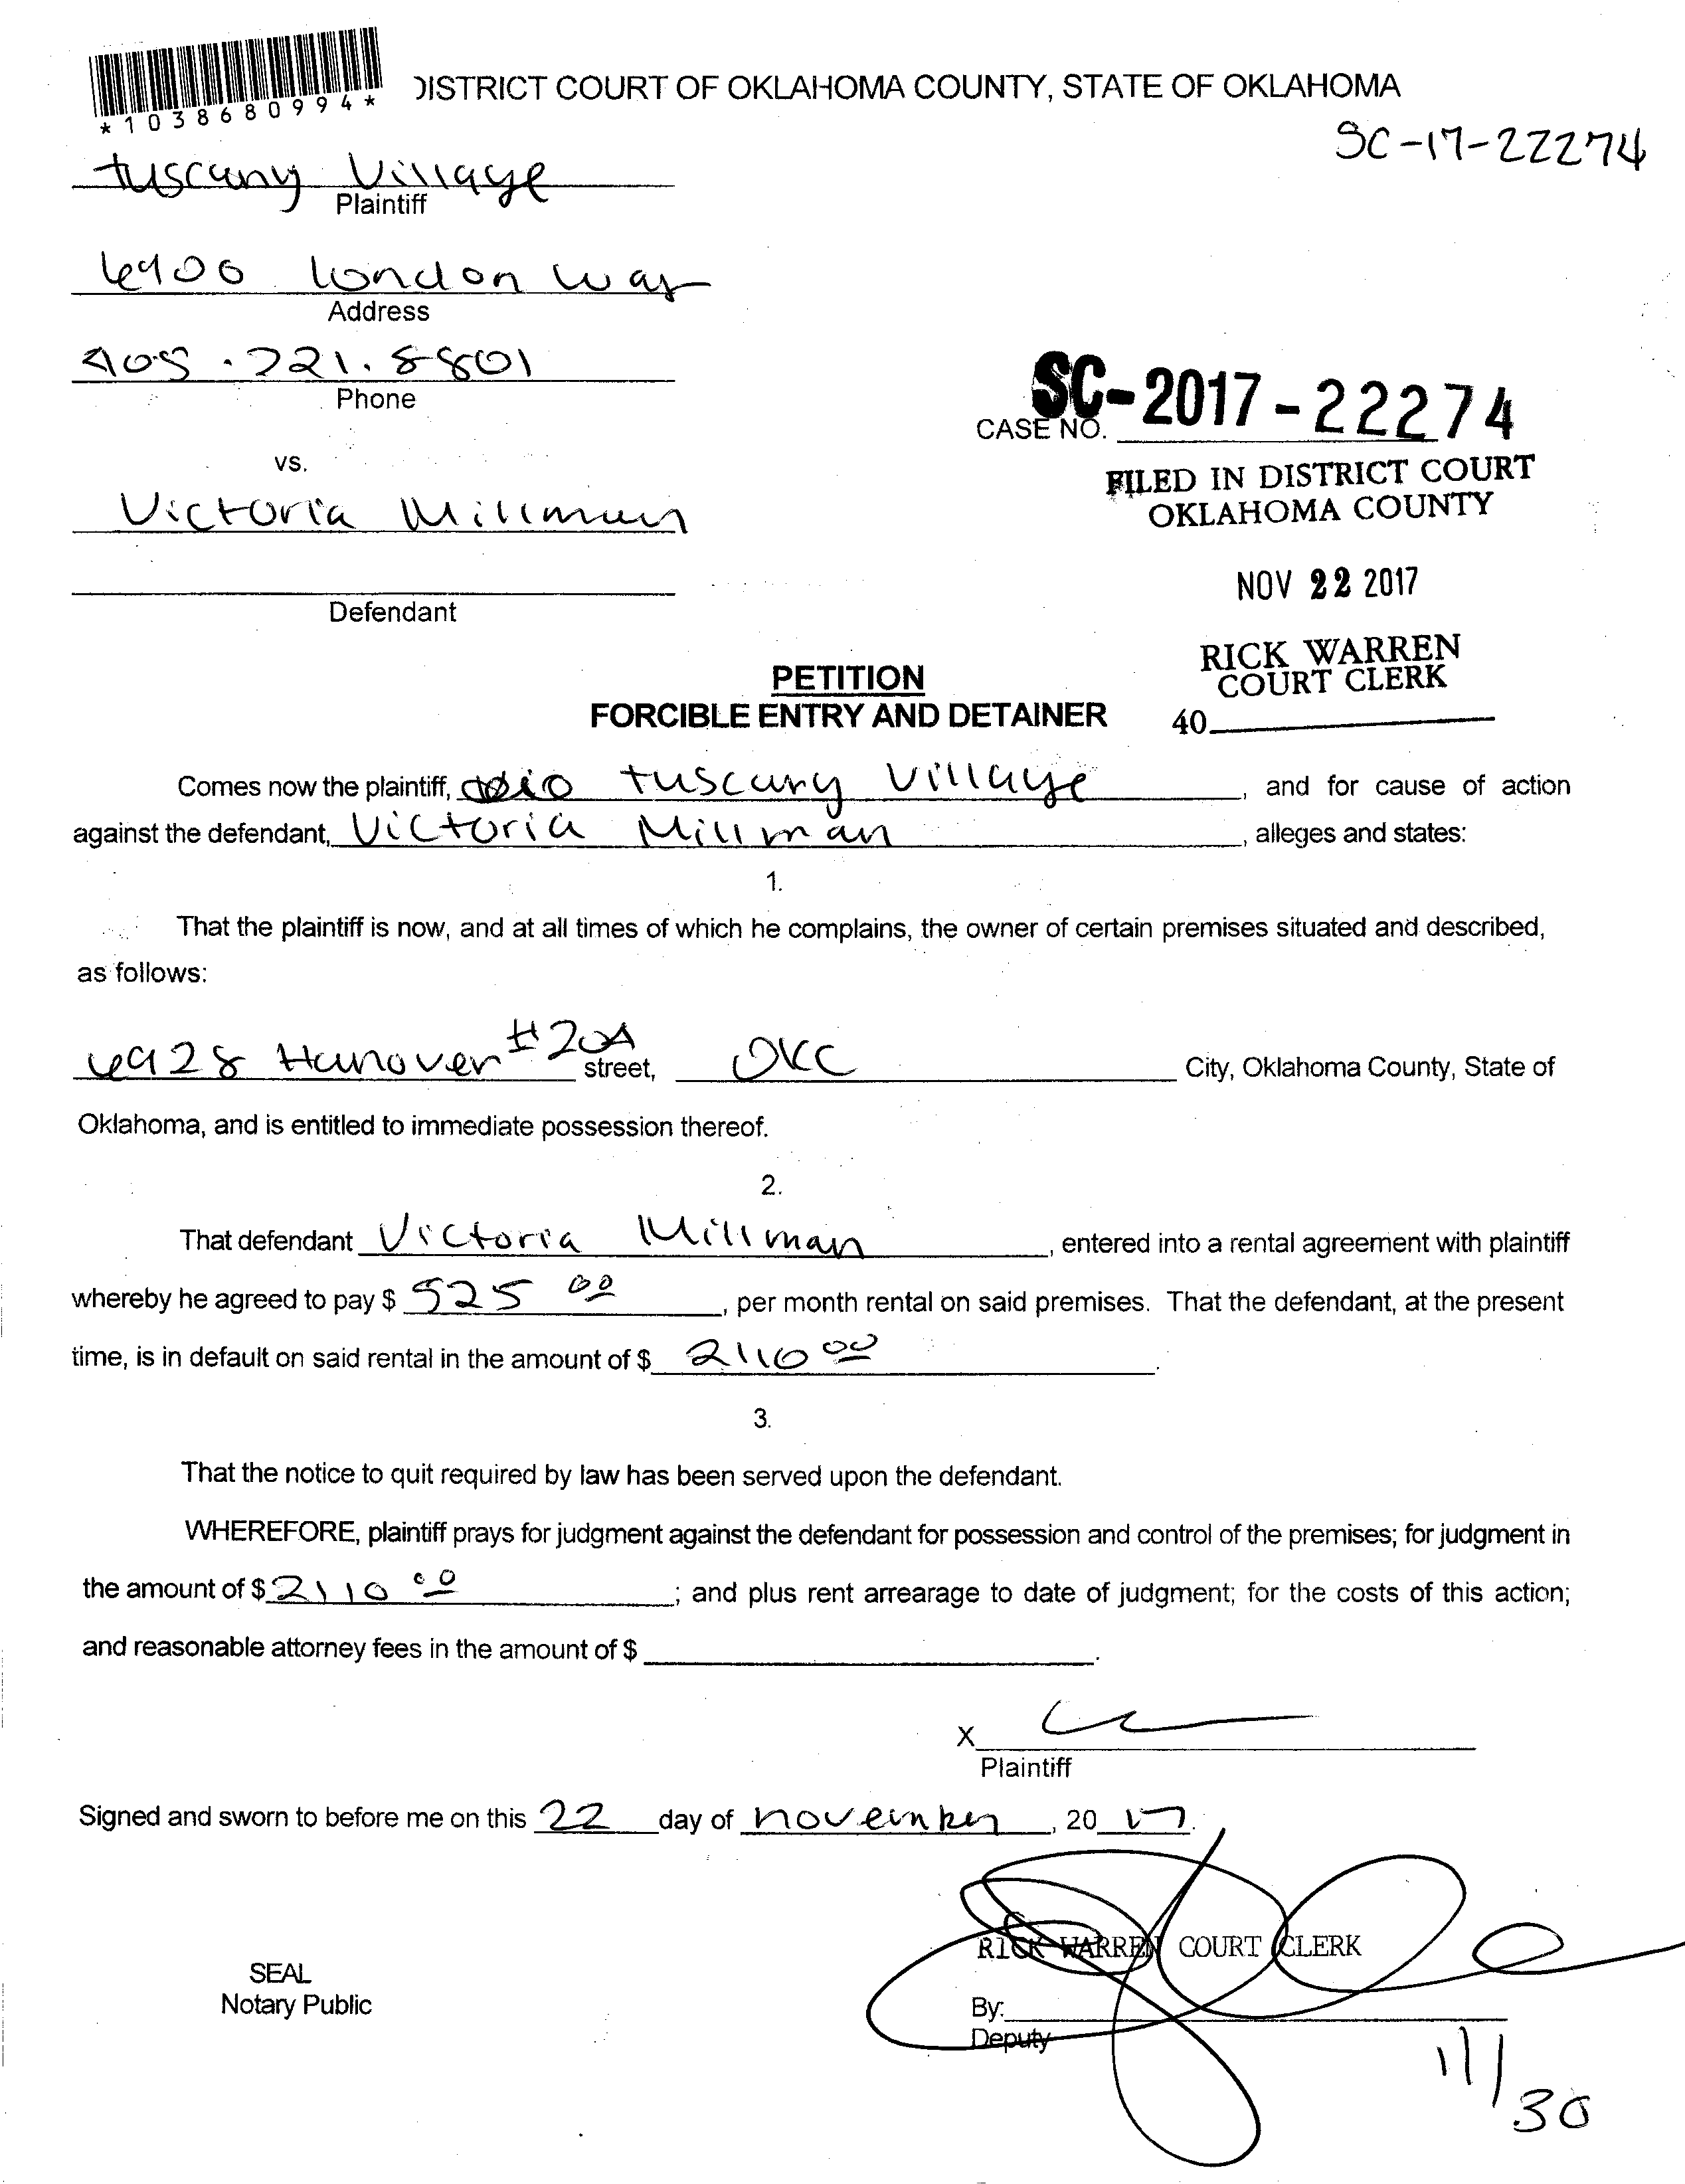 *1038680994*
DISTRICT COURT OF OKLAHOMA COUNTY, STATE OF OKLAHOMA
SC-17-22274
tuscany Village
Plaintiff
6900 London Way
Address
405.721.8801
Phone
SC-2017-22274
CASE NO.
vs.
FILED IN DISTRICT COURT
OKLAHOMA COUNTY
Victoria Millman
NOV 22 2017
Defendant
RICK WARREN
COURT CLERK
PETITION
FORCIBLE ENTRY AND DETAINER
40
Comes now the plaintiff, tuscany Village, and for cause of action
against the defendant, Victoria Millman, alleges and states:
1.
That the plaintiff is now, and at all times of which he complains, the owner of certain premises situated and described,
as follows:
6928 Hanover #20A street, OKC City, Oklahoma County, State of
Oklahoma, and is entitled to immediate possession thereof.
2.
That defendant Victoria Millman, entered into a rental agreement with plaintiff
whereby he agreed to pay $ 525 00, per month rental on said premises. That the defendant, at the present
time, is in default on said rental in the amount of $ 2110 00.
3.
That the notice to quit required by law has been served upon the defendant.
WHEREFORE, plaintiff prays for judgment against the defendant for possession and control of the premises; for judgment in
the amount of $ 2110 00; and plus rent arrearage to date of judgment; for the costs of this action;
and reasonable attorney fees in the amount of $ .
X
Plaintiff
Signed and sworn to before me on this 22 day of november, 20 17.
RICK WARREN COURT CLERK
SEAL
Notary Public
By:
Deputy
11/30